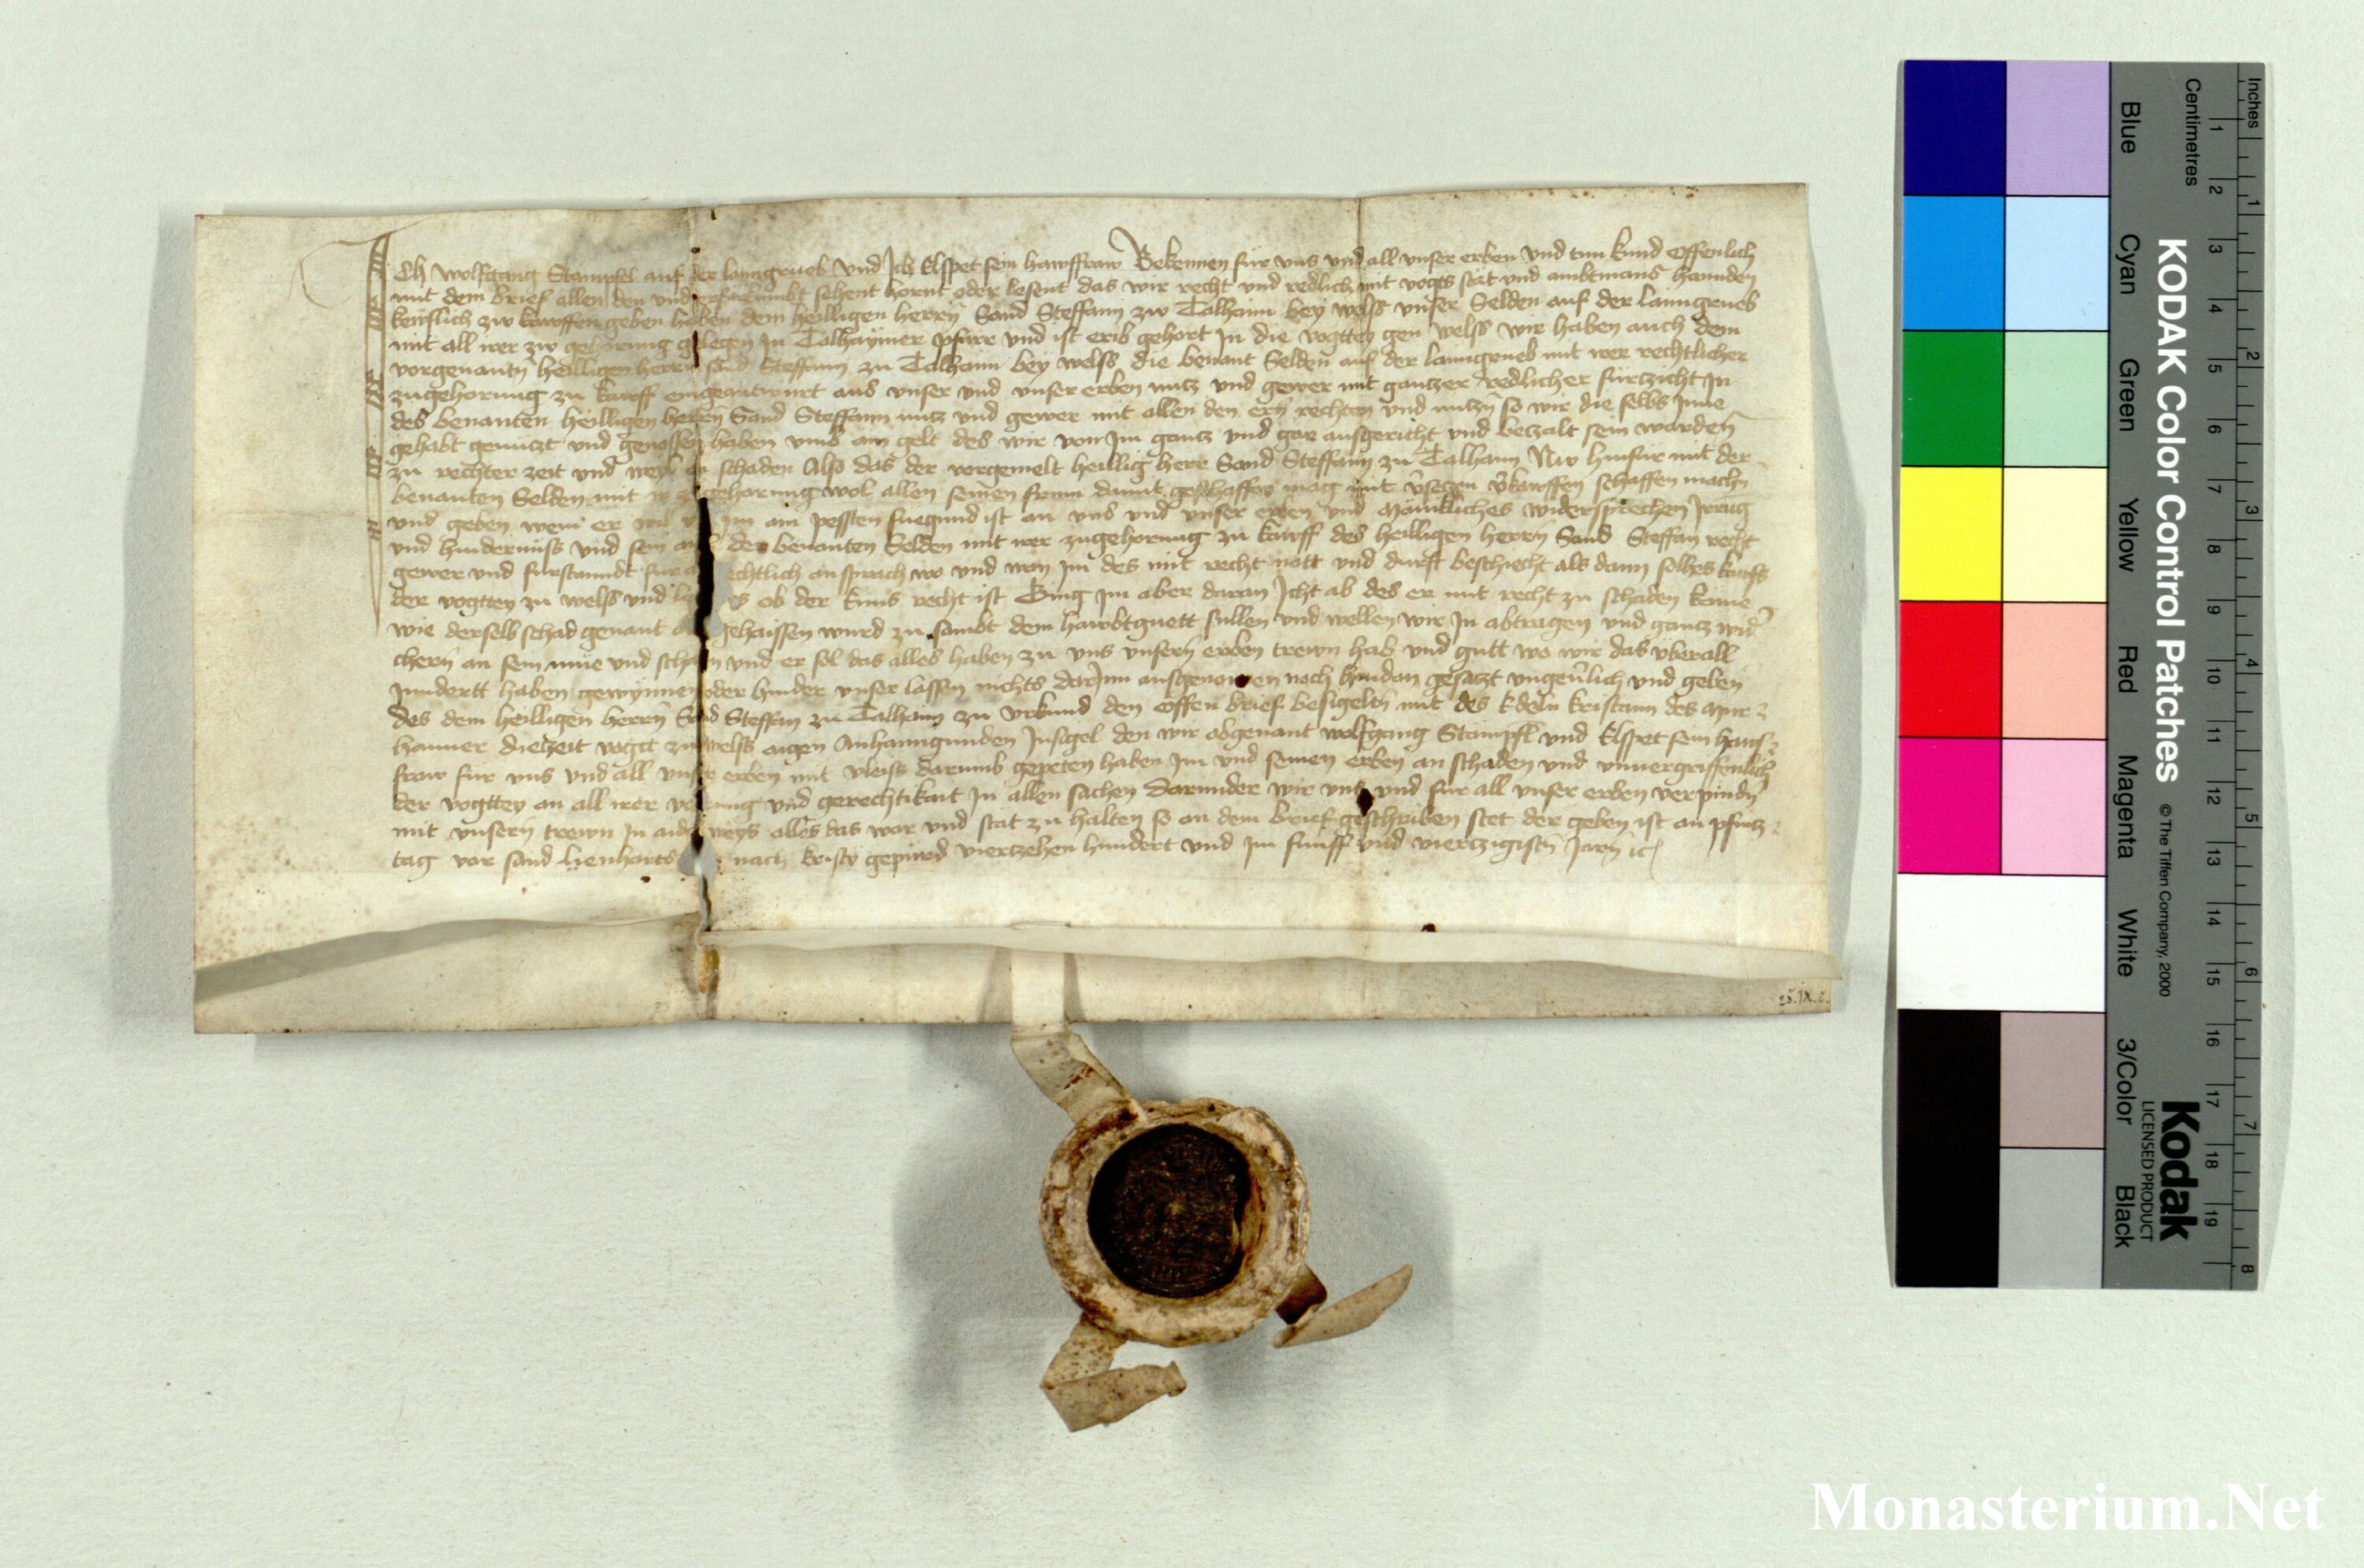 Ich wolfgang Stampfel auf der lanngrueb Vnd Ich Elspet sein hawsfraw Bekennen für vns vnd all vnser erben Vnd tun kund Offenlich
mit dem brief allen den vnd er furkumbt sehent hornt oder lesent das wir recht vnd redlich mit vogts stat und ambtmans hannden
kewflich zw kawffen geben haben dem heilligen herrn Sand Steffann zw Talhaim bey welss vnser Selden auf der lanngrueb
mit all irer zw gehorung gelegen In Talhaymer pfarr vnd ist erib gehort In die vogttey gen welss wir haben auch dem
vorgenantn heilligen herrn sand Steffann zu Talhaim bey welss die benant Selden auf der lanngrueb mit irer rechtlicher
zugehorung zu kawff eingeantwurt aus vnser vnd vnser erben nutz vnd gewer mit gantzer redlicher fürtzicht In
des benanten heilligen herrn Sand Steffann nutz vnd gewer mit allen den ern rechten vnd nutzn so wir die selbs Inne
gehabt genutzt vnd genossen haben vmb ain gelt des wir von Im gantz vnd gar ausgericht vnd betzalt sein warden
zu rechter zeit vnd weyl an schaden Also das der vorgemelt heillig herr Sand Steffann zu Talhaim Nw hinfür mit der
benanten Selden mit gehorung wol allen seinen frum damit geschaffen mag mit vsetzen vkawffen schaffen machn
vnd geben wem er wil Im am pessten fuegund ist an vns vnd vnser erben vnd mänikliches widersprechen Irrug
vnd hindernuss vnd sein der benanten Selden mit irer zugehorung zu kawff des heilligen herrn Sand Steffan recht
gewer vnd furstanndt für echtlich ansprach wo vnd wan Im des mit recht nott vnd durft beschiecht als dann solhes kawfs
der vogttey zu welss vnd es ob der Enns recht ist Ging Im aber daran Icht ab des er mit recht zu schaden käme
wie derselb schad genant gehaissen wurd zu sambt dem hawbtguett sullen vnd wellen wir In abtragen vnd gantz wid
chern an sein müe vnd schaden vnd er sol das alles haben zu vns vnsern erben trewn hab vnd gutt wo wir das vberall
Inndertt haben gewynnen oder hinder vnser lassen nichts darInn ausgenomen noch hindan gesatzt vngeuerlich vnd geben
des dem heilligen herrn Sand Steffan zu Talhaim zu vrkund den offen brief besigeltn mit des Edeln kristann des
hanner dietzeit vogtt zu welss aigen Anhanngunden Insigel den wir obgenant wolfgang Stämpfl vnd Elspet sein haus
fraw für vns vnd all vnser erben mit vleiss darumb gepeten haben Im vnd seinen erben an schaden vnd vnuergriffenlich
der vogttey an all irer vnd gerechtikait In allen sachen Darunder wir vns vnd für all vnser erben verpindn
mit vnsern trewn In aids weys alles das war vnd stat zu halten so an dem brief geschriben stet der geben ist an pfintz
tag vor sand lienharts nach kristy gepurd viertzehen hundert vnd Im fünff vnd viertzigistn Jarn
KODAK Color Control Patches
© The Tiffen Company, 2000
Kodak
LICENSED PRODUCT
Inches
Centimetres
1 2 3 4 5 6 7 8 9 10 11 12 13 14 15 16 17 18 19
1 2 3 4 5 6 7 8
Blue Cyan Green Yellow Red Magenta White 3/Color Black
Monasterium.Net